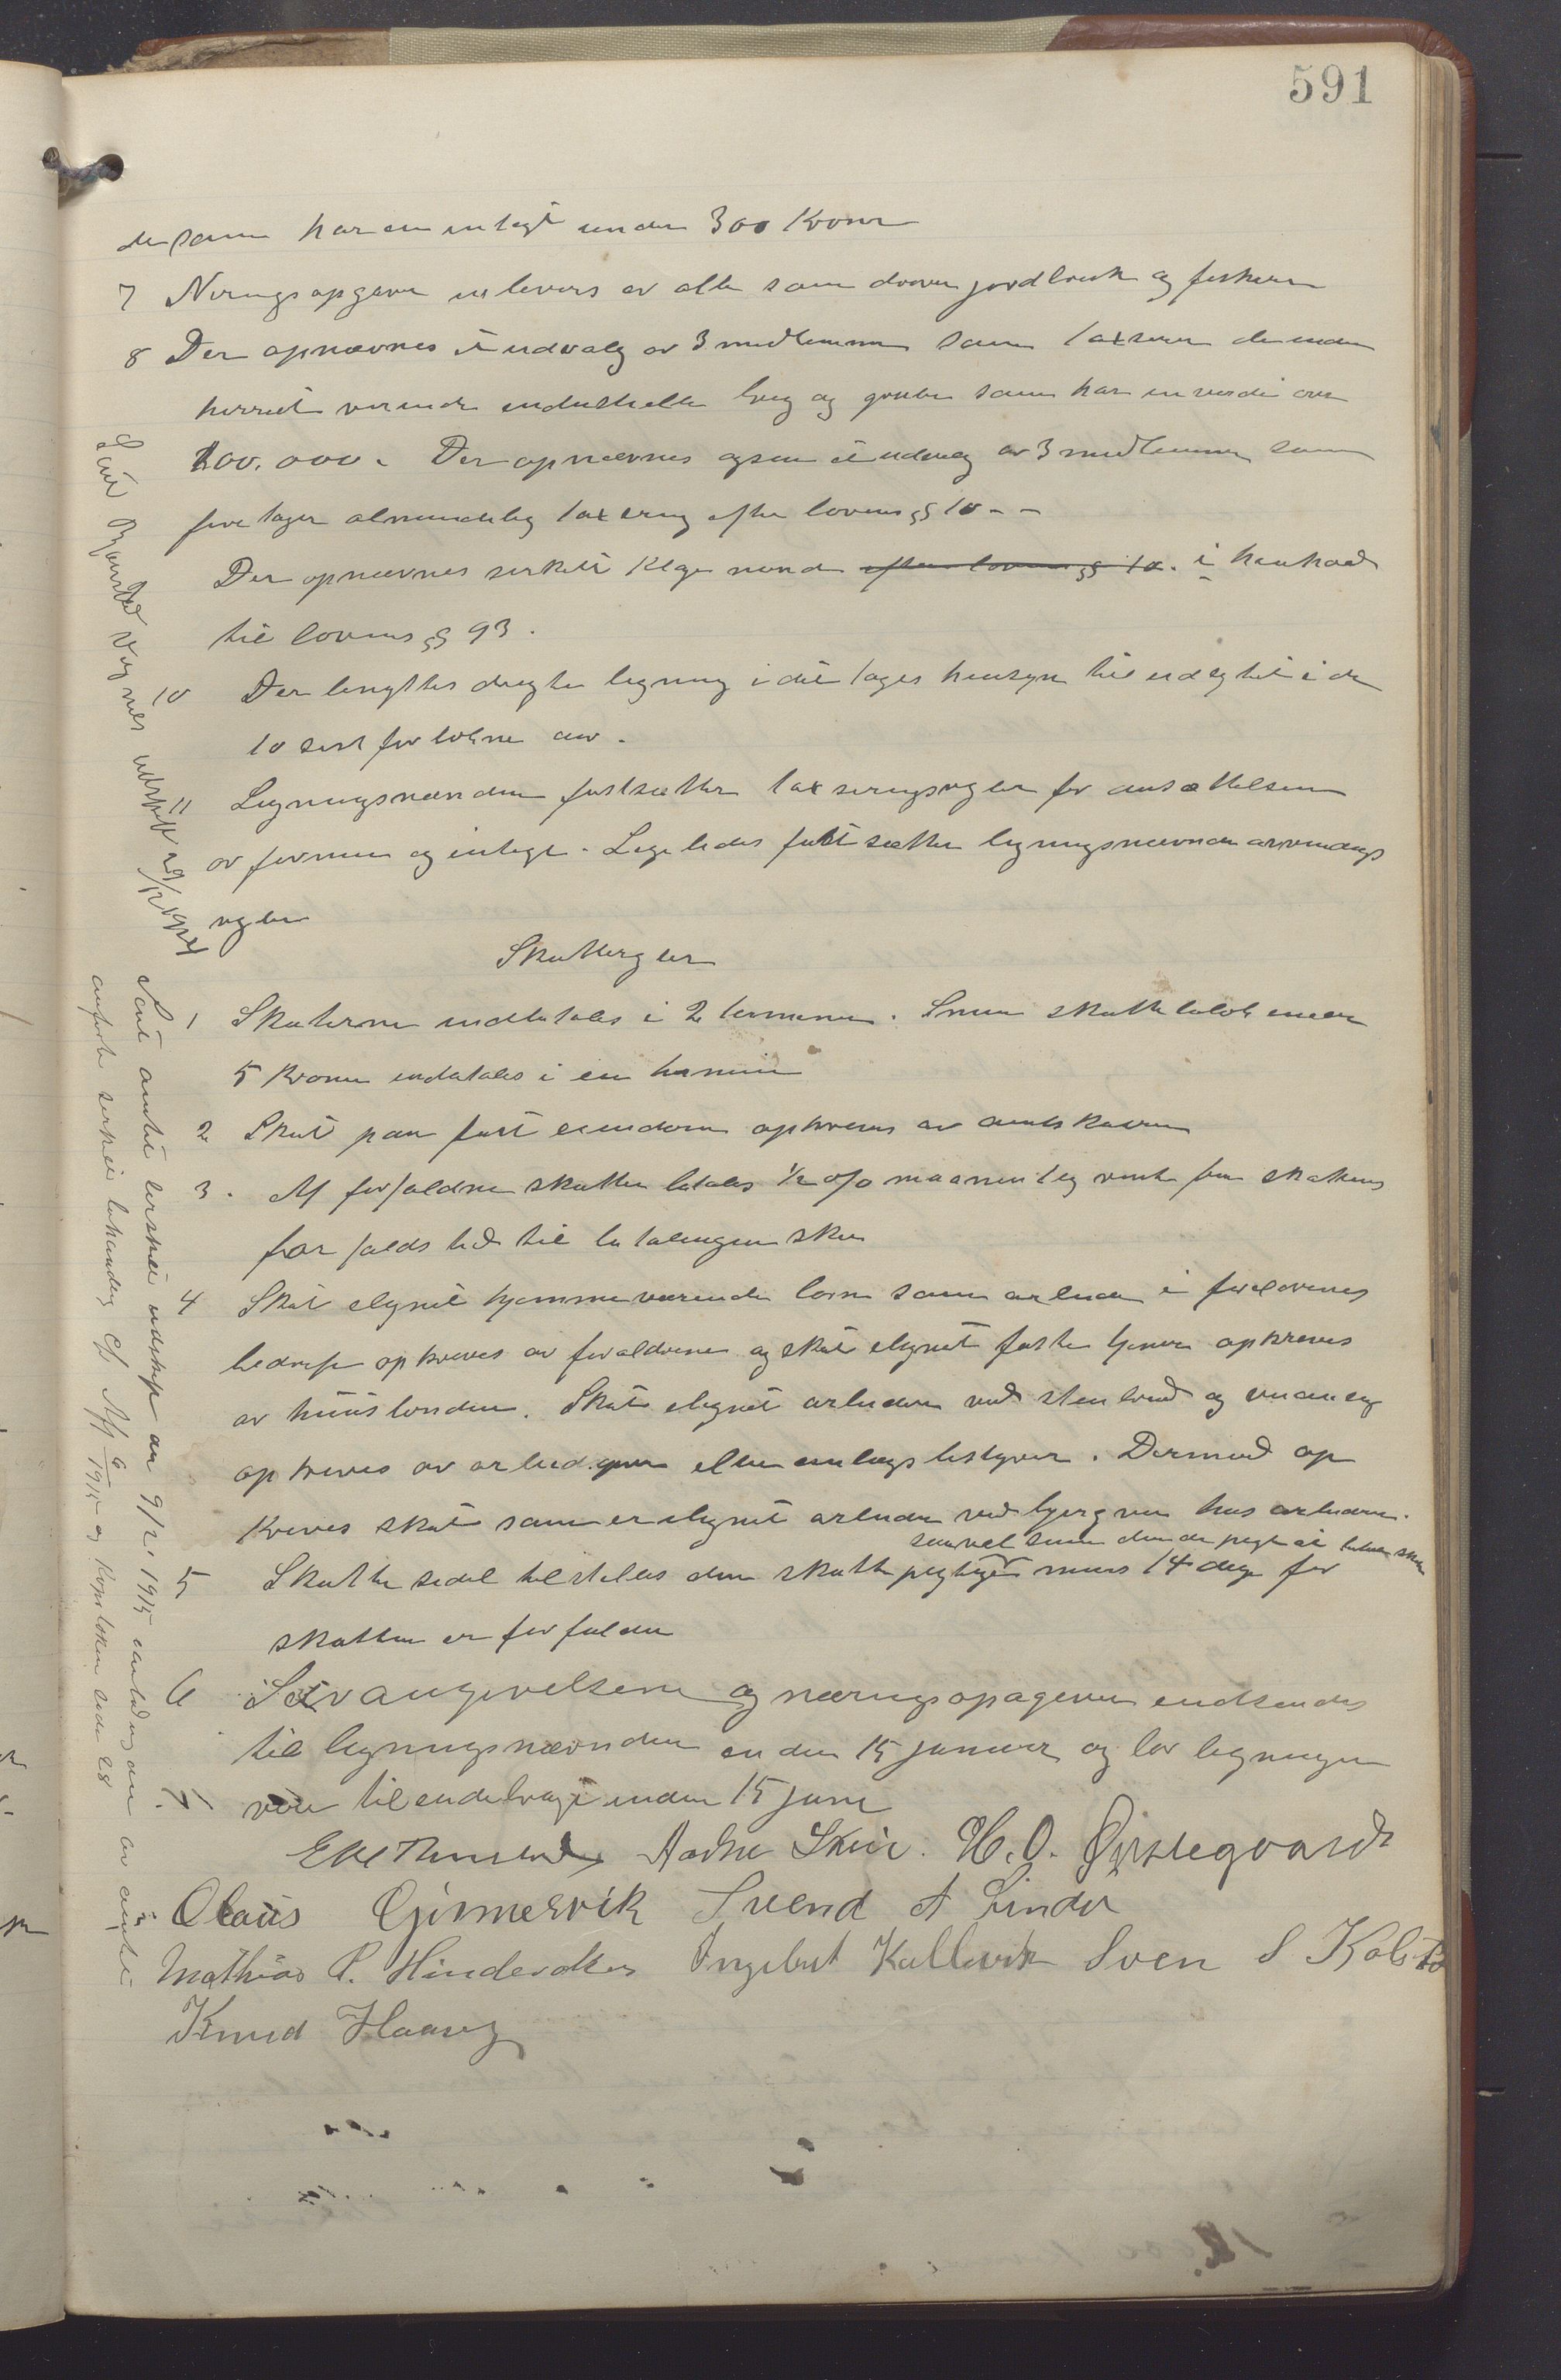 591
dersom har en integt under 300 Kroner
7 Neringsopgaver inleveres av alle som driver jordbruk og fiskeri
8 Der opnævnes et udvalg av 3 medlemmer som taxerer de inden
herred verende industrielle brug og gruber som har en verdi over
100.000. Der opnævnes ogsaa et udvalg av 3 medlemmer som
foretager almindelig taxering efter lovens §§ 10 - -
Der opnævnes serskilt klage nævnd efter lovens §§ 10. i henhold
til lovens §§ 93.
10 Der benyttes drøgte ligning i det tages hensyn til udbyttet i de
10 sist forløbne aar.
11 Ligningsnævnden fastsætter taxseringsregler for ansættelsen
av formue og integt. Ligeledes fastsætter ligningsnævnden avrundings
regler
Skatteregler
1 Skatterne indbetales i 2 terminer. Smaa skattebeløb under
5 Kroner indbetales i en termin
2 Skat paa fast eiendom opkreves av amtskassen
3. Af forfaldne skatter betales 1/2 o/o maanentlig rente fra skattens
forfalds tid til betalingen sker
4 Skat elignet hjemmeværende børn som arbeider i forældrenes
bedrift opkreves av forældrene og skat elignet faste tjenere opkreves
av huusbonden. Skat elignet arbeidere ved stenbrud og
opkreves av arbeidsgiver eller anlægs bestyrer. Dermed op
kreves skat som er elignet arbeidere ved bjergverk hos arbeideren.
saavel som den der pligter at betale skat
5 Skatte sedel tilstilles den skatte pligtige minst 14 dage før
skatten er forfalden
6 Selvangivelserne og næringsopagever indsendes
til ligningsnævnden inden 15 januar og bør ligningen
være tilendebragt inden 15 juni
Aadne Skeie. H. O. Øyestegvaard
Olaus Grimmervik Svend A Linder
Mathias P. Hinderaker Ingebret Kallevik Sven S Kolstø
Knud Haaveg
Sent Bjarstad Vognes udskrift 29/12 1914
Sent amtet berskilt udskrift av 9/2 1915 anledning av av amtet
anførte serskilt behandling Cfr Afj 6/1915 og Kopiboken side 28